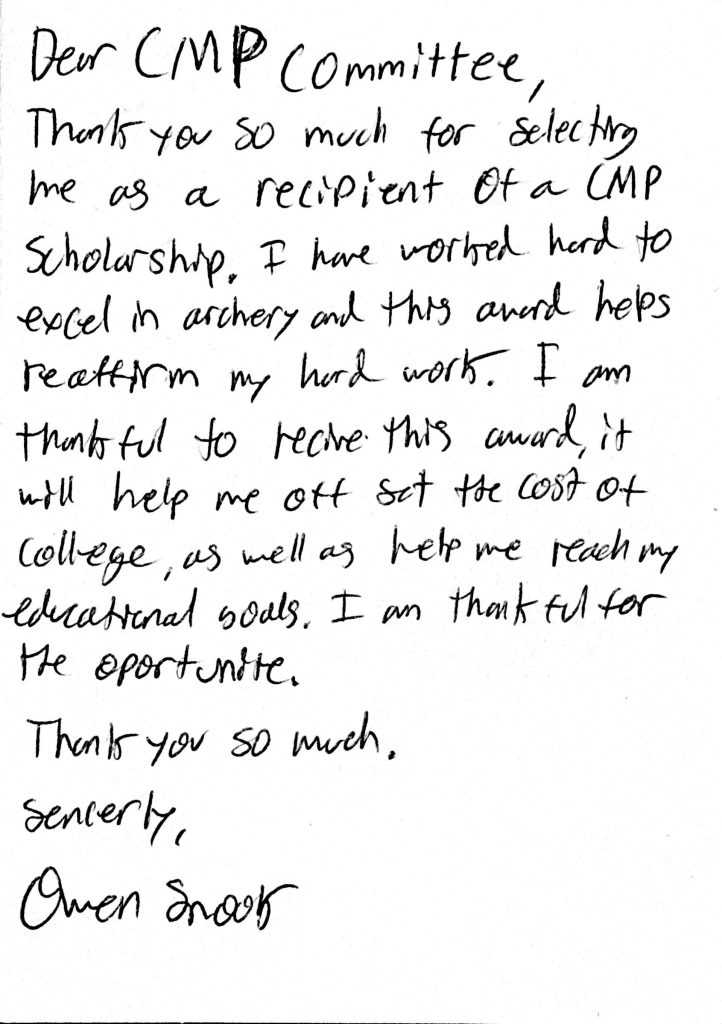 Dear CMP Committee,
Thank you so much for selecting
me as a recipient of a CMP
Scholarship. I have worked hard to
excel in archery and this award helps
reaffirm my hard work. I am
thankful to recive this award, it
will help me off set the cost of
college, as well as help me reach my
educational goals. I am thankful for
the oportunite.
Thank you so much.
Sencerly,
Owen Snook